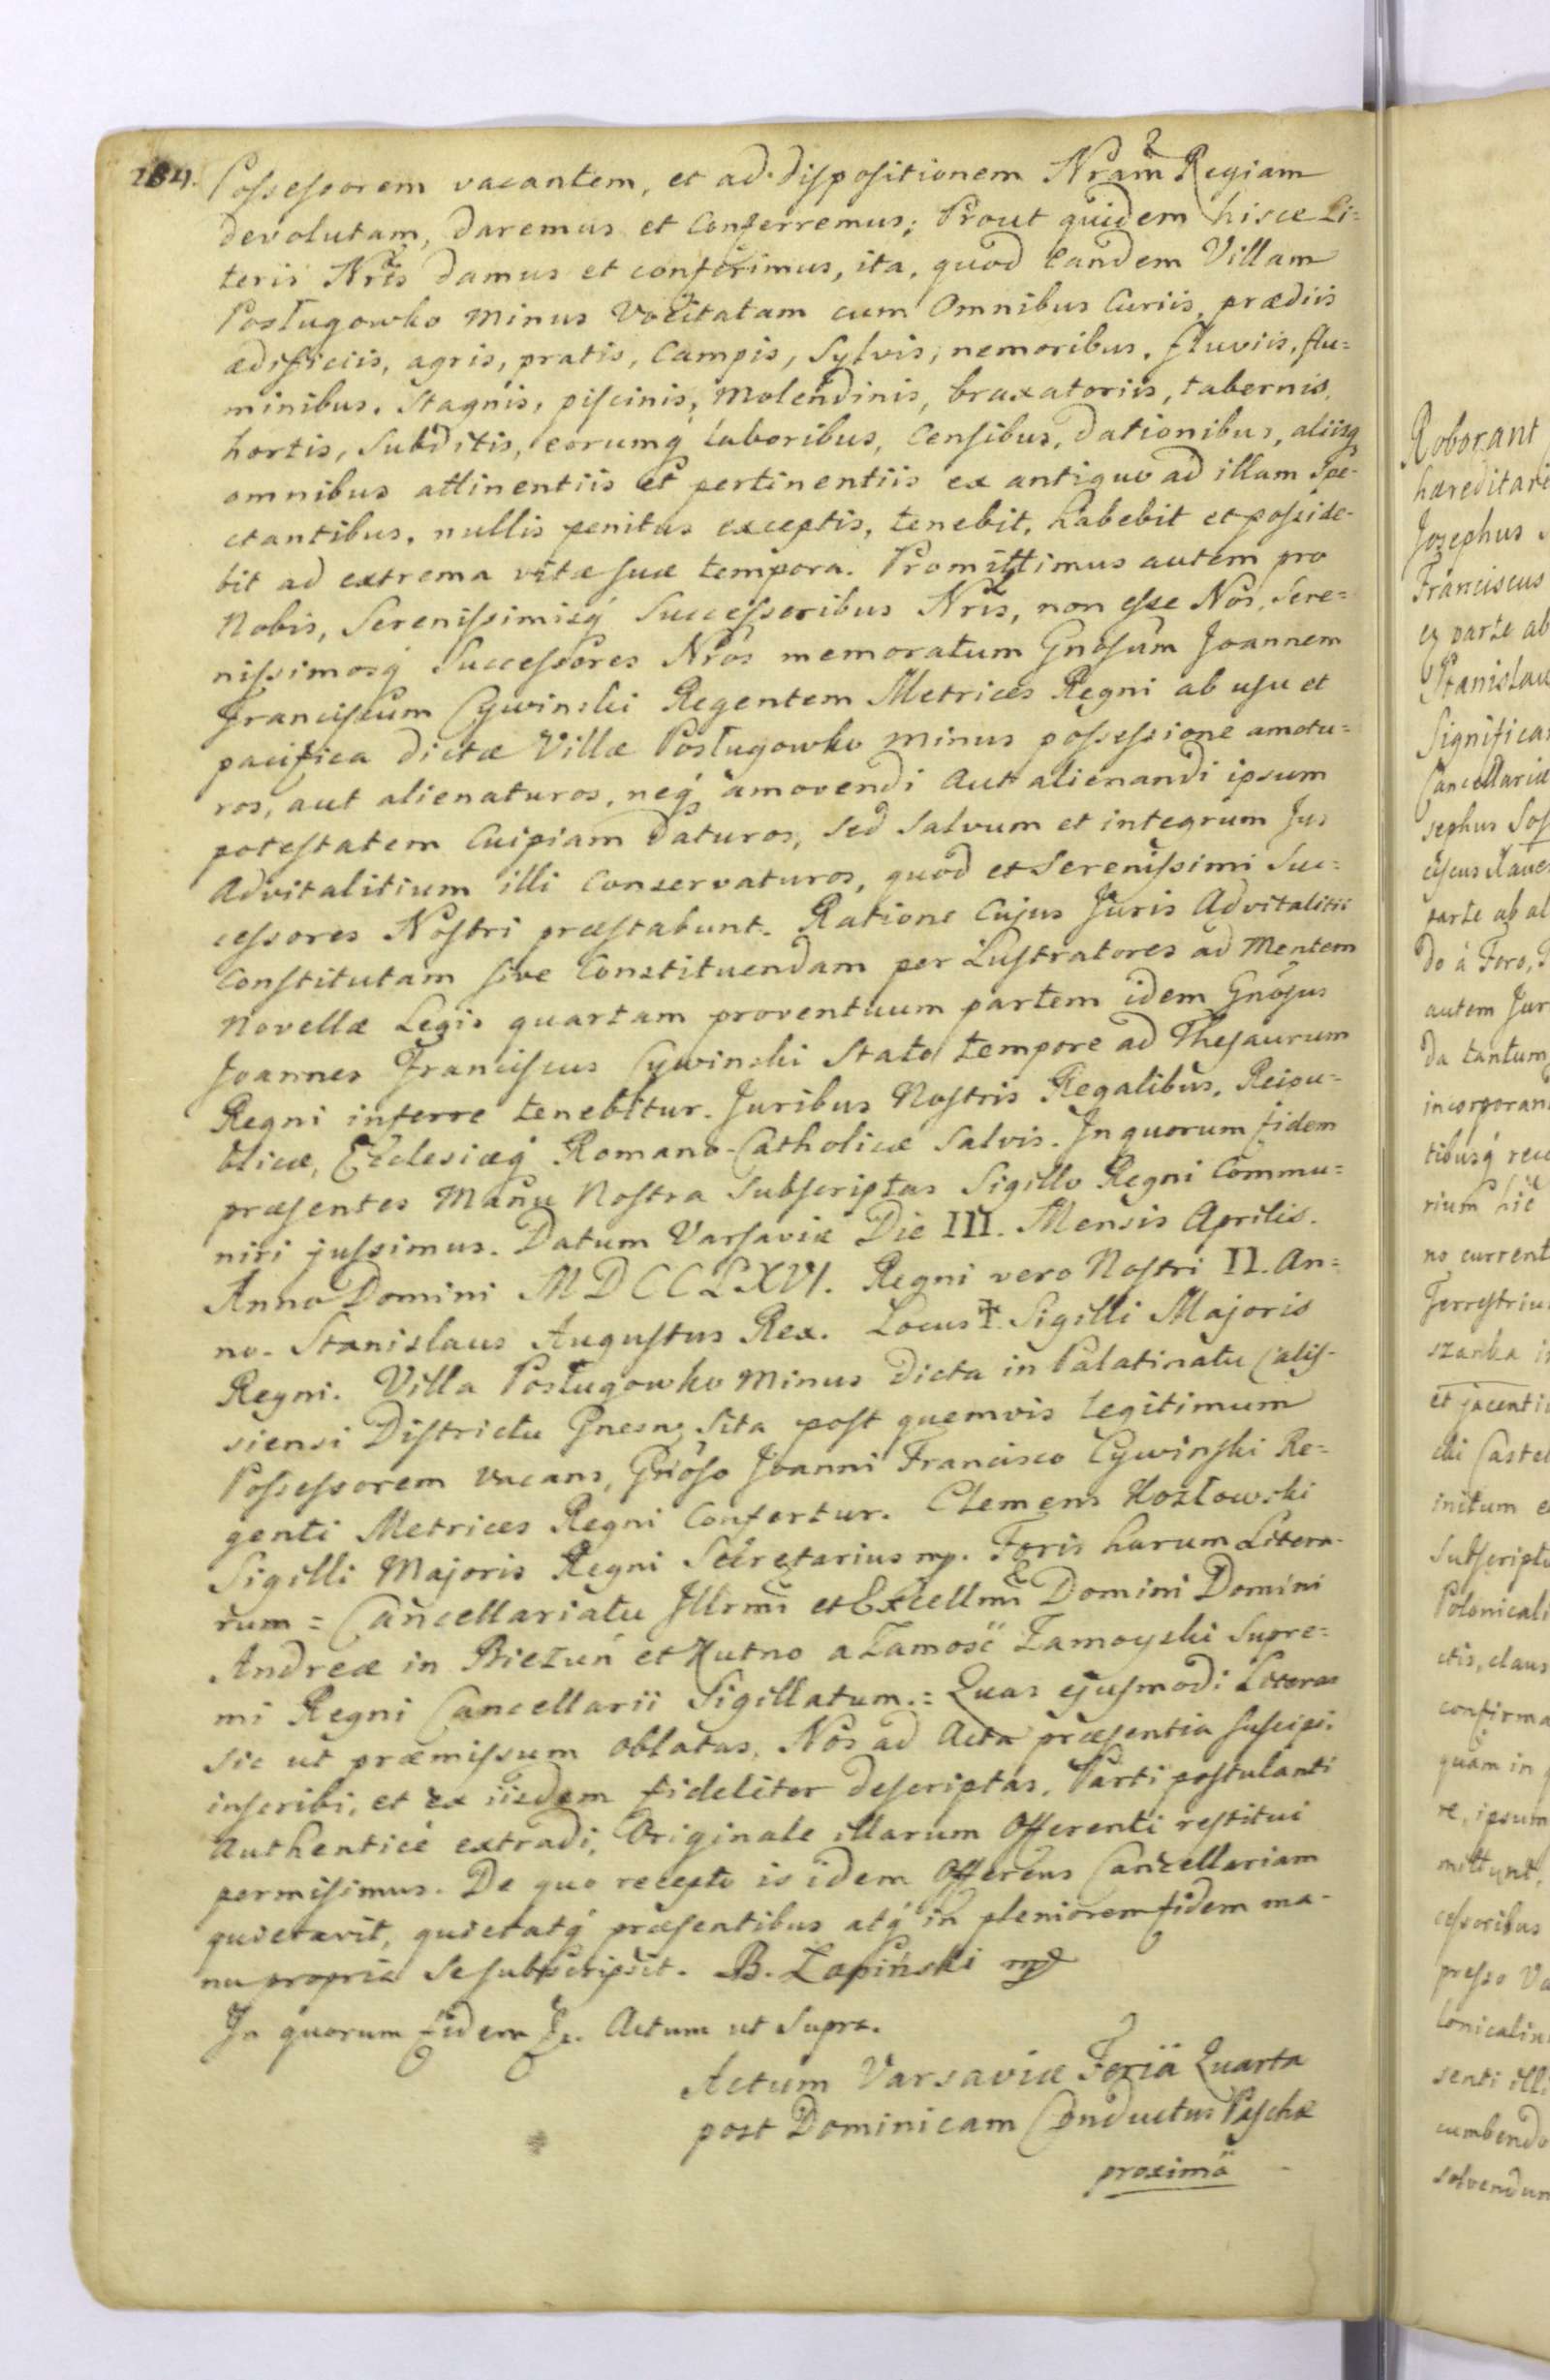 184. Possessorem vacantem, et ad dispositionem Nram Regiam
devolutam, daremus et Conferremus; Prout quidem hisce Li=
teris Nris damus et conferimus, ita, quod eandem Villam
Posługowko minus Vocitatam cum Omnibus Curiis, prædiis
ædificiis, agris, pratis, Campis, Sylvis, nemoribus, fluviis, flu=
minibus, Stagnis, piscinis, Molendinis, braxatoriis, tabernis,
hortis, Subditis, eorumq laboribus, Censibus, dationibus, aliisq
omnibus attinentiis et pertinentiis ex antiquo ad illam Spe-
ctantibus, nullis penitus exceptis, tenebit, habebit et posside-
bit ad extrema vitæ suæ tempora. Promittimus autem pro
Nobis, Serenissimisq Successoribus Nris, non esse Nos, Sere=
nissimosq Successores Nros memoratum Gnosum Joannem
Franciscum Cywinski Regentem Metrices Regni ab usu et
pacifica dictæ Villæ Posługowko minus possessione amotu=
ros, aut alienaturos, neq amovendi Aut alienandi ipsum
potestatem Cuipiam daturos, Sed Salvum et integrum Jus
Advitalitium illi Conservaturos, quod et Serenissimi Suc=
cessores Nostri præstabunt. Ratione Cujus Juris Advitalitii
Constitutam sive Constituendam per Lustratores ad Mentem
Novellæ Legis quartam proventuum partem idem Gnosus
Joannes Franciscus Cywinski Stato tempore ad Thesaurum
Regni inferre tenebitur. Juribus Nostris Regalibus, Reipu-
blicæ, Ecclesiæq Romano-Catholicæ Salvis. In quorum fidem
præsentes Manu Nostra Subscriptas Sigillo Regni Commu=
niri jussimus. Datum Varsaviæ Die III. Mensis Aprilis.
Anno Domini MDCCLXVI. Regni vero Nostri II. An=
no. Stanislaus Augustus Rex. Locus ✝ Sigilli Majoris
Regni. Villa Posługowko Minus dicta in Palatinatu Calis-
siensi Districtu Gnesn: Sita post quemvis legitimum
Possessorem vacans, Gnoso Joanni Francisco Cywinski Re=
genti Metrices Regni Confertur. Clemens Kozłowski
Sigilli Majoris Regni Secretarius mp. Foris harum Litera-
rum = Cancellariatu Illrmi et Excellmi Domini Domini
Andreæ in Bieżuń et Kutno a Zamość Zamoyski Supre=
mi Regni Cancellarii Sigillatum. = Quas ejusmodi Literas
sic ut præmissum oblatas, Nos ad Acta præsentia suscipi,
inscribi, et ex iisdem fideliter descriptas, Parti postulanti
Authenticè extradi, Originale illarum Offerenti restitui
permisimus. De quo recepto is idem Offerens Cancellariam
quietavit, quietatq præsentibus atq in pleniorem fidem ma-
nu propria se subscripsit. B. Łapiński mp
In quorum fidem &. Actum ut Supra.
Actum Varsaviæ Feriâ Quarta
post Dominicam Conductus Paschæ
proximâ

Roborant
Josephus
Franciscus
ex parte ab
Cancellariæ
parte ab al
do à Foro,
autem Jur
da tantum
incorporan
rium hic
no current
et jacenti
initum e
confirma
quàm in
re, ipsum
mittunt,
cessoribus
presso Va
lonicalin
senti illi
cumbendo
solvendum